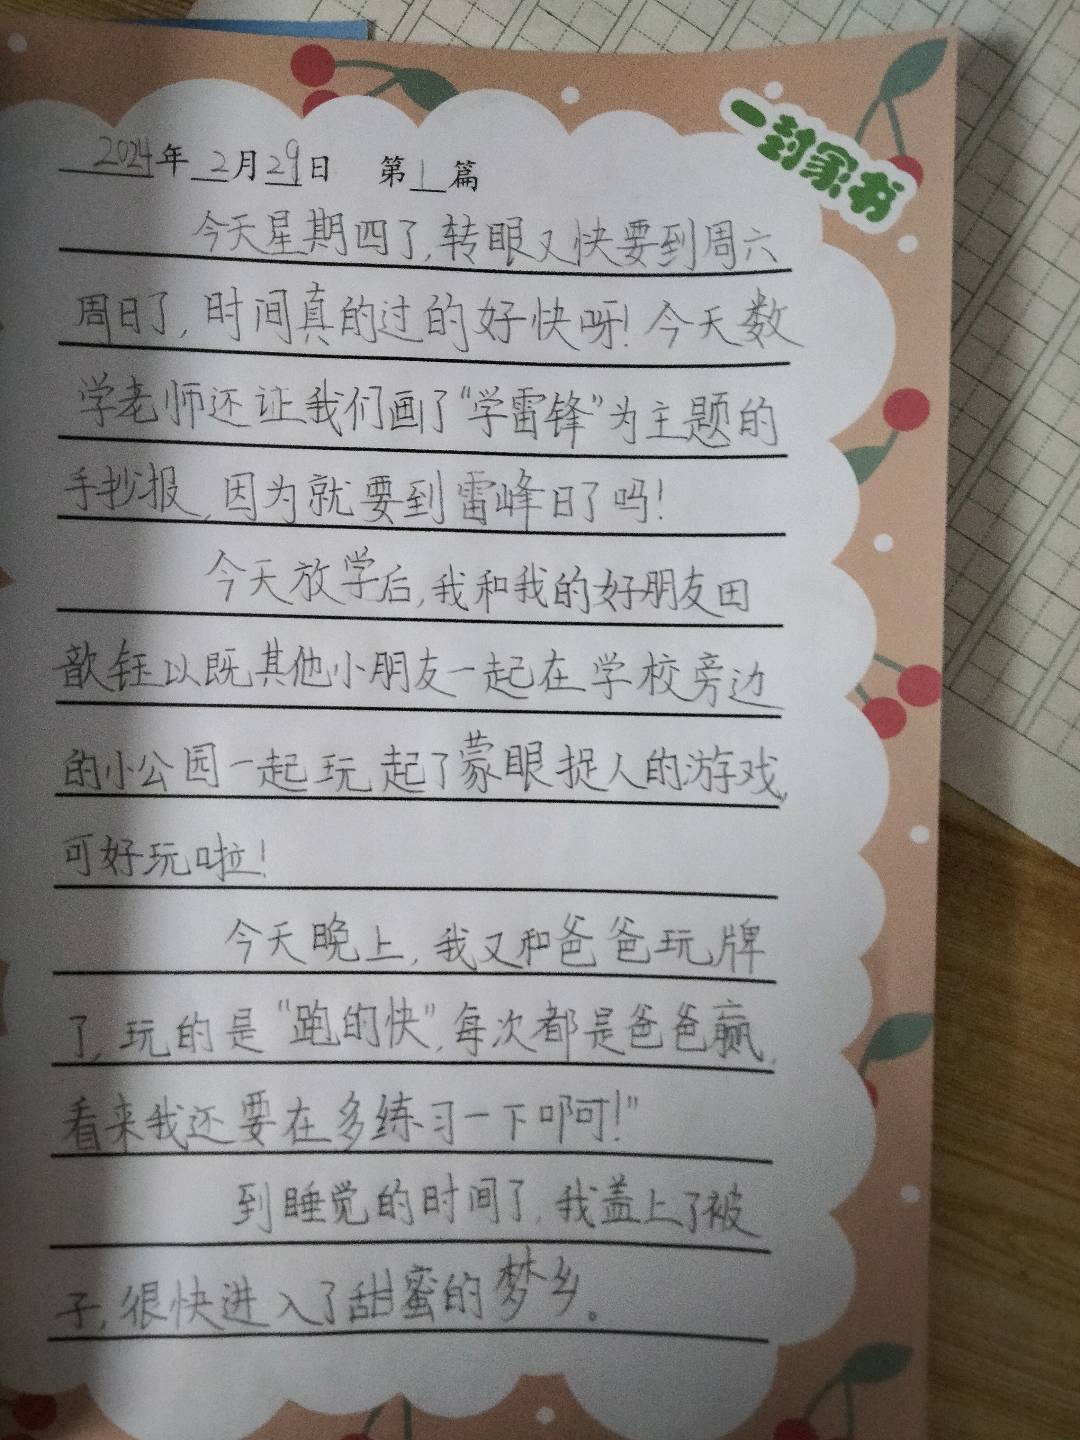 一封家书
2024年 2月29日 第1篇
今天星期四了,转眼又快要到周六
周日了,时间真的过的好快呀!今天数
学老师还让我们画了“学雷锋”为主题的
手抄报,因为就要到雷峰日了吗!
今天放学后,我和我的好朋友田
歆钰以既其他小朋友一起在学校旁边
的小公园一起玩起了蒙眼捉人的游戏,
可好玩啦!
今天晚上,我又和爸爸玩牌
了,玩的是“跑的快”,每次都是爸爸赢,
看来我还要在多练习一下啊!”
到睡觉的时间了,我盖上了被
子,很快进入了甜蜜的梦乡。